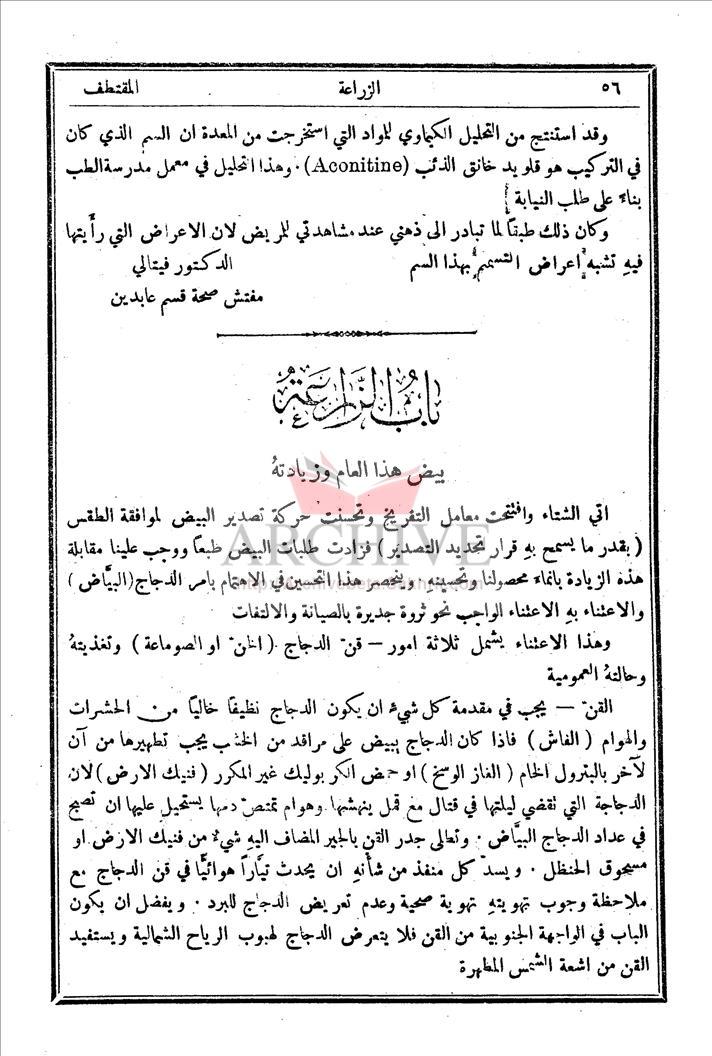 ٥٦ الزراعة المقتطف
وقد استنتج من التحليل الكيماوي للمواد التي استخرجت من المعدة ان السم الذي كان
في التركيب هو قلويد خانق الذئب (Aconitine). وهذا التحليل في معمل مدرسة الطب
بناء على طلب النيابة
وكان ذلك طبقًا لما تبادر الى ذهني عند مشاهدتي للمريض لان الاعراض التي رأيتها
فيهِ تشبه اعراض التسمم بهذا السم الدكتور فيتالي
مفتش صحة قسم عابدين
باب الزراعة
بيض هذا العام وزيادتهُ
اتي الشتاء وافتتحت معامل التفريخ وتحسنت حركة تصدير البيض لموافقة الطقس
( بقدر ما يسمح بهِ قرار تحديد التصدير ) فزادت طلبات البيض طبعًا ووجب علينا مقابلة
هذه الزيادة بانماء محصولنا وتحسينهِ. وينحصر هذا التحسين في الاهتمام بامر الدجاج (البيَّاض)
والاعتناء بهِ الاعتناء الواجب نحو ثروة جديرة بالصيانة والالتفات
وهذا الاعتناء يشمل ثلاثة امور — قنّ الدجاج (الخنّ او الصوماعة) وتغذيتهُ
وحالتهُ العمومية
القنّ — يجب في مقدمة كل شيء ان يكون الدجاج نظيفًا خاليًا من الحشرات
والهوام (الفاش) فاذا كان الدجاج يبيض على مراقد من الخشب يجب تطهيرها من آن
لآخر بالبترول الخام (الغاز الوسخ) او حمض الكربوليك غير المكرر (فنيك الارض) لان
الدجاجة التي تقضي ليلتها في قتال مع قمل ينهشها وهوام تمتص دمها يستحيل عليها ان تصبح
في عداد الدجاج البيَّاض. وتطلى جدر القن بالجير المضاف اليهِ شيء من فنيك الارض او
مسحوق الحنظل. ويسدّ كل منفذ من شأنهِ ان يحدث تيَّارًا هوائيًّا في قن الدجاج مع
ملاحظة وجوب تهويتهِ تهوية صحية وعدم تعريض الدجاج للبرد. ويفضل ان يكون
الباب في الواجهة الجنوبية من القن فلا يتعرض الدجاج لهبوب الرياح الشمالية ويستفيد
القن من اشعة الشمس المطهرة
ARCHIVE